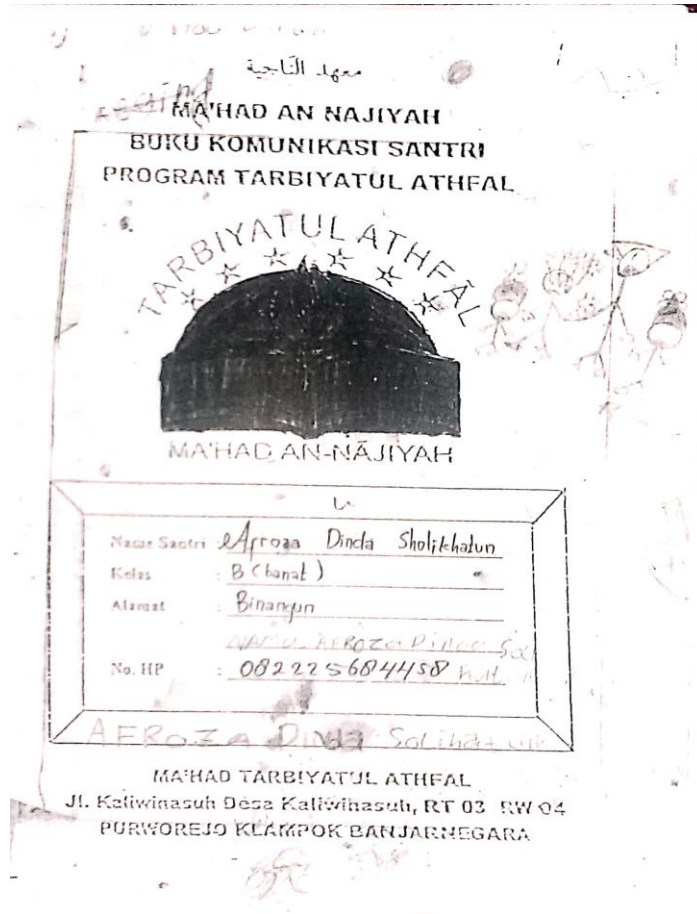 معهد النّاجية
MA'HAD AN NAJIYAH
BUKU KOMUNIKASI SANTRI
PROGRAM TARBIYATUL ATHFAL
TARBIYATUL ATHFĀL
MA'HAD AN-NĀJIYAH
Nama Santri Afroza Dinda Sholikhatun
Kelas : B (banat)
Alamat : Binangun
NAMA AFROZA Dinda
No. HP : 082225684458
AFROZA DINDA Solihatun
MA'HAD TARBIYATUL ATHFAL
Jl. Kaliwinasuh Desa Kaliwinasuh, RT 03 RW 04
PURWOREJO KLAMPOK BANJARNEGARA